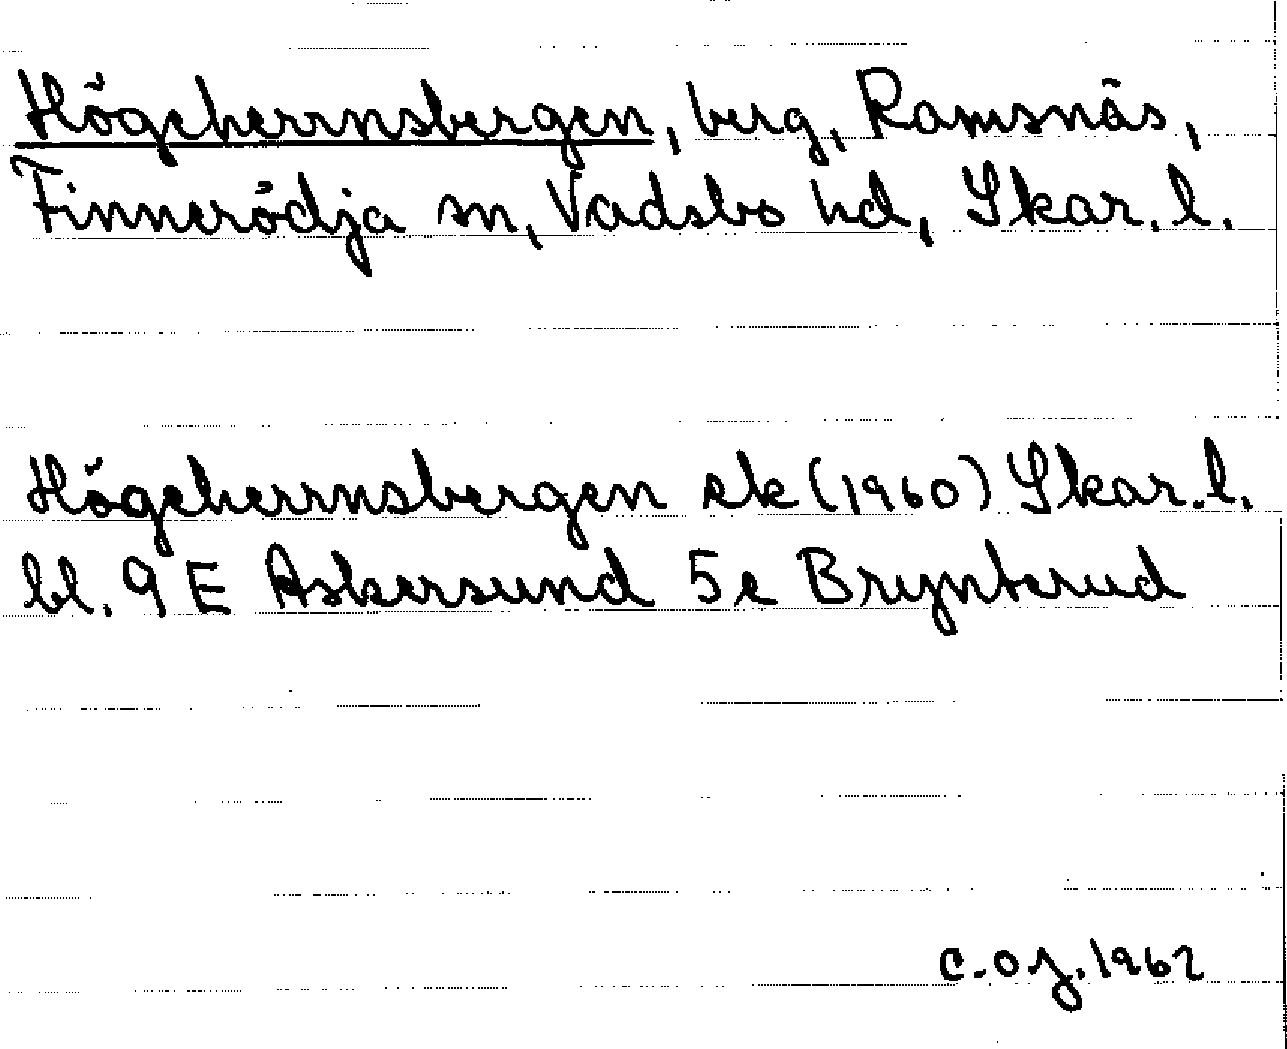 Högeherrnsbergen, berg, Ramsnäs,
Finnerödja sn, Vadsbo hd, Skar. l.
Högeherrnsbergen ek (1960) Skar. l.
bl. 9 E Askersund 5e Brynterud
C.O.J. 1962